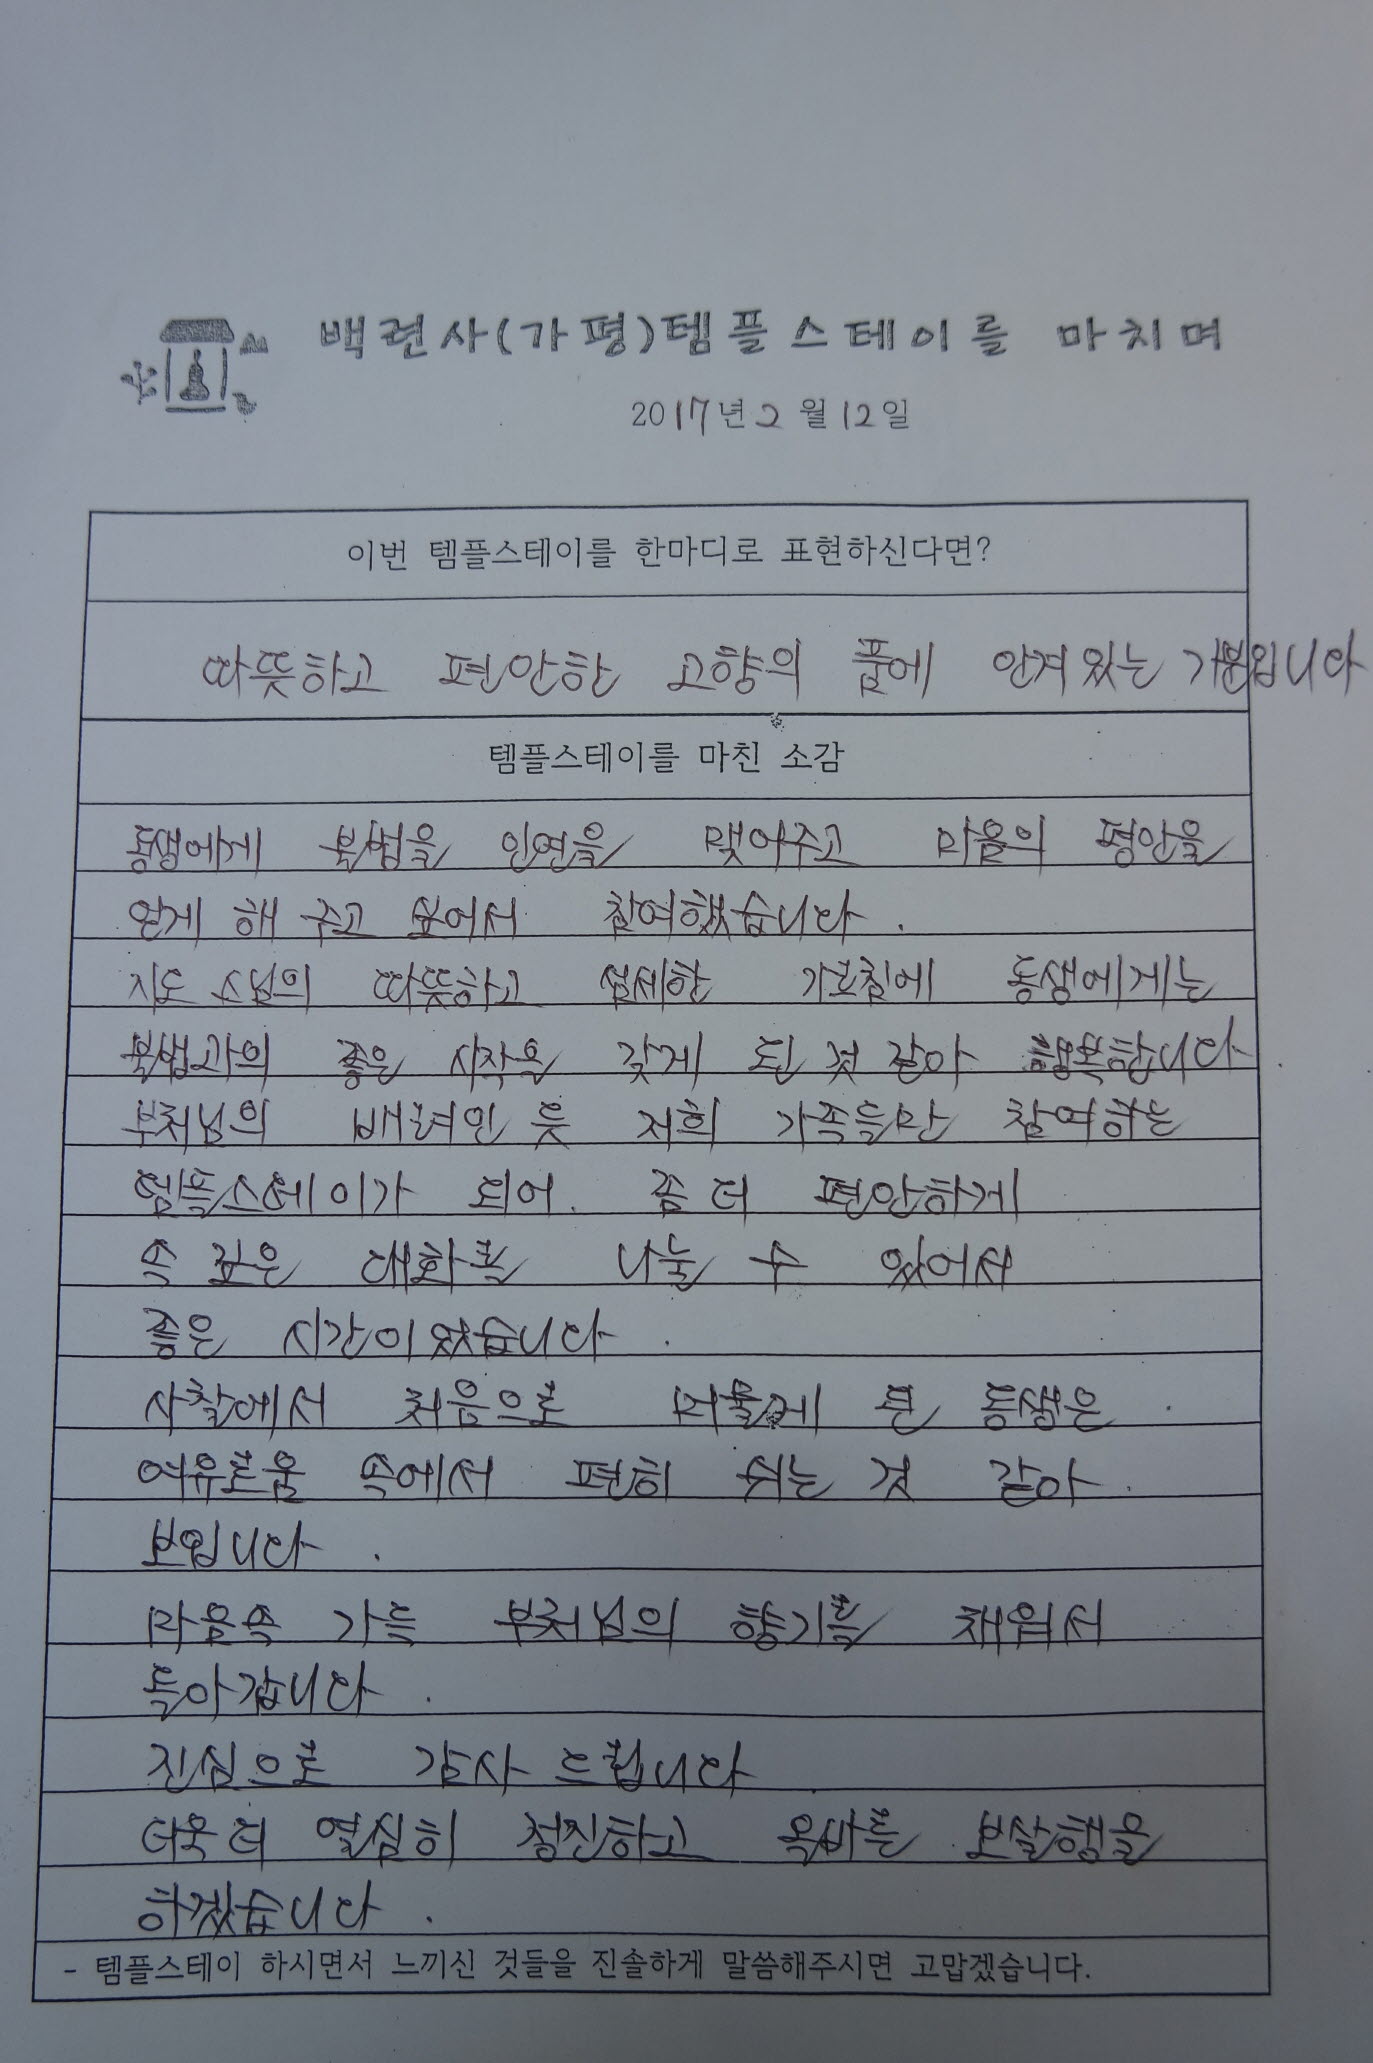 백련사(가평)템플스테이를 마치며
2017년 2월 12일
이번 템플스테이를 한마디로 표현하신다면?
따뜻하고 편안한 고향의 품에 안겨있는 기분입니다
템플스테이를 마친 소감
동생에게 불법을 인연을 맺어주고 마음의 평안을
얻게 해 주고 싶어서 참여했습니다.
지도 스님의 따뜻하고 섬세한 가르침에 동생에게는
불법과의 좋은 시작을 갖게 된 것 같아 행복합니다.
부처님의 배려인 듯 저희 가족들만 참여하는
템플스테이가 되어. 좀 더 편안하게
속 깊은 대화를 나눌 수 있어서
좋은 시간이었습니다.
사찰에서 처음으로 머물게 된 동생은.
여유로움 속에서 편히 쉬는 것 같아.
보입니다.
마음속 가득 부처님의 향기를 채워서
돌아갑니다.
진심으로 감사 드립니다.
더욱더 열심히 정진하고 올바른 보살행을
하겠습니다.
- 템플스테이 하시면서 느끼신 것들을 진솔하게 말씀해주시면 고맙겠습니다.